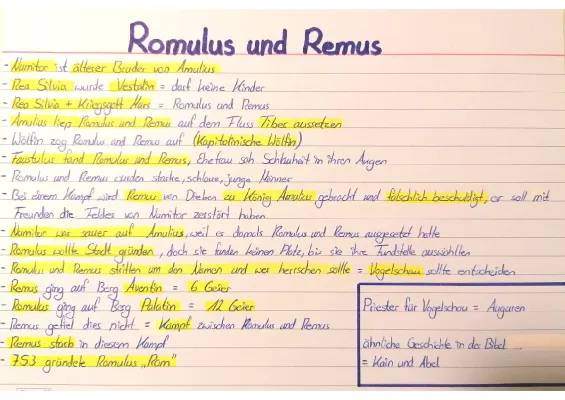 Romulus und Remus
- Numitor ist älterer Bruder von Amulius
- Rea Silvia wurde Vestalin = darf keine Kinder
- Rea Silvia + Kriegsgott Mars = Romulus und Remus
- Amulius ließ Romulus und Remus auf dem Fluss Tiber aussetzen
- Wölfin zog Romulus und Remus auf (Kapitolinische Wölfin)
- Faustulus fand Romulus und Remus, Ehefrau sah Schlauheit in ihren Augen
- Romulus und Remus wurden starke, schlaue, junge Männer
- Bei einem Kampf wird Remus von Dieben zu König Amulius gebracht und fälschlich beschuldigt, er soll mit
Freunden die Felder von Numitor zerstört haben
- Numitor war sauer auf Amulius, weil er damals Romulus und Remus ausgesetzt hatte
- Romulus wollte Stadt gründen, doch sie fanden keinen Platz, bis sie ihre Fundstelle auswählten
- Romulus und Remus stritten um den Namen und wer herrschen sollte = Vogelschau sollte entscheiden
- Remus ging auf Berg Aventin = 6 Geier
- Romulus ging auf Berg Palatin = 12 Geier
- Remus gefiel dies nicht = Kampf zwischen Romulus und Remus
- Remus starb in diesem Kampf
- 753 gründete Romulus „Rom"
Priester für Vogelschau = Auguren
ähnliche Geschichte in der Bibel
= Kain und Abel